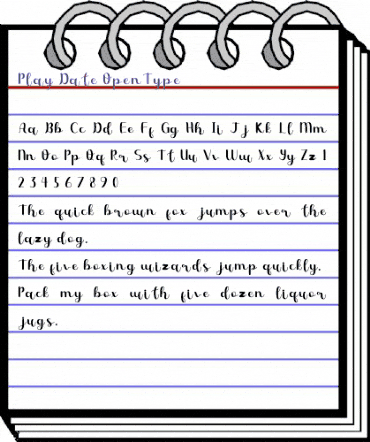 Play Date OpenType
Aa Bb Cc Dd Ee Ff Gg Hh Ii Jj Kk Ll Mm
Nn Oo Pp Qq Rr Ss Tt Uu Vv Ww Xx Yy Zz 1
2 3 4 5 6 7 8 9 0
The quick brown fox jumps over the
lazy dog.
The five boxing wizards jump quickly.
Pack my box with five dozen liquor
jugs.